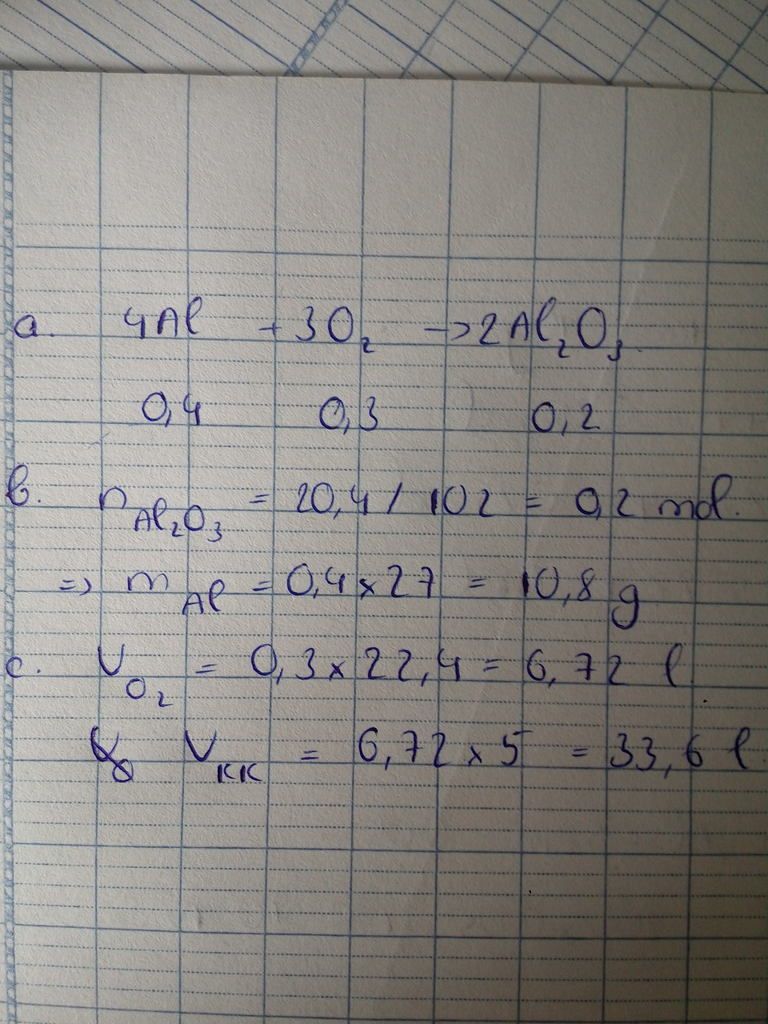 a. 4Al + 3O₂ -> 2Al₂O₃
0,4 0,3 0,2
b. n Al₂O₃ = 20,4 / 102 = 0,2 mol.
=> m Al = 0,4 x 27 = 10,8 g
c. V O₂ = 0,3 x 22,4 = 6,72 l
V KK = 6,72 x 5 = 33,6 l